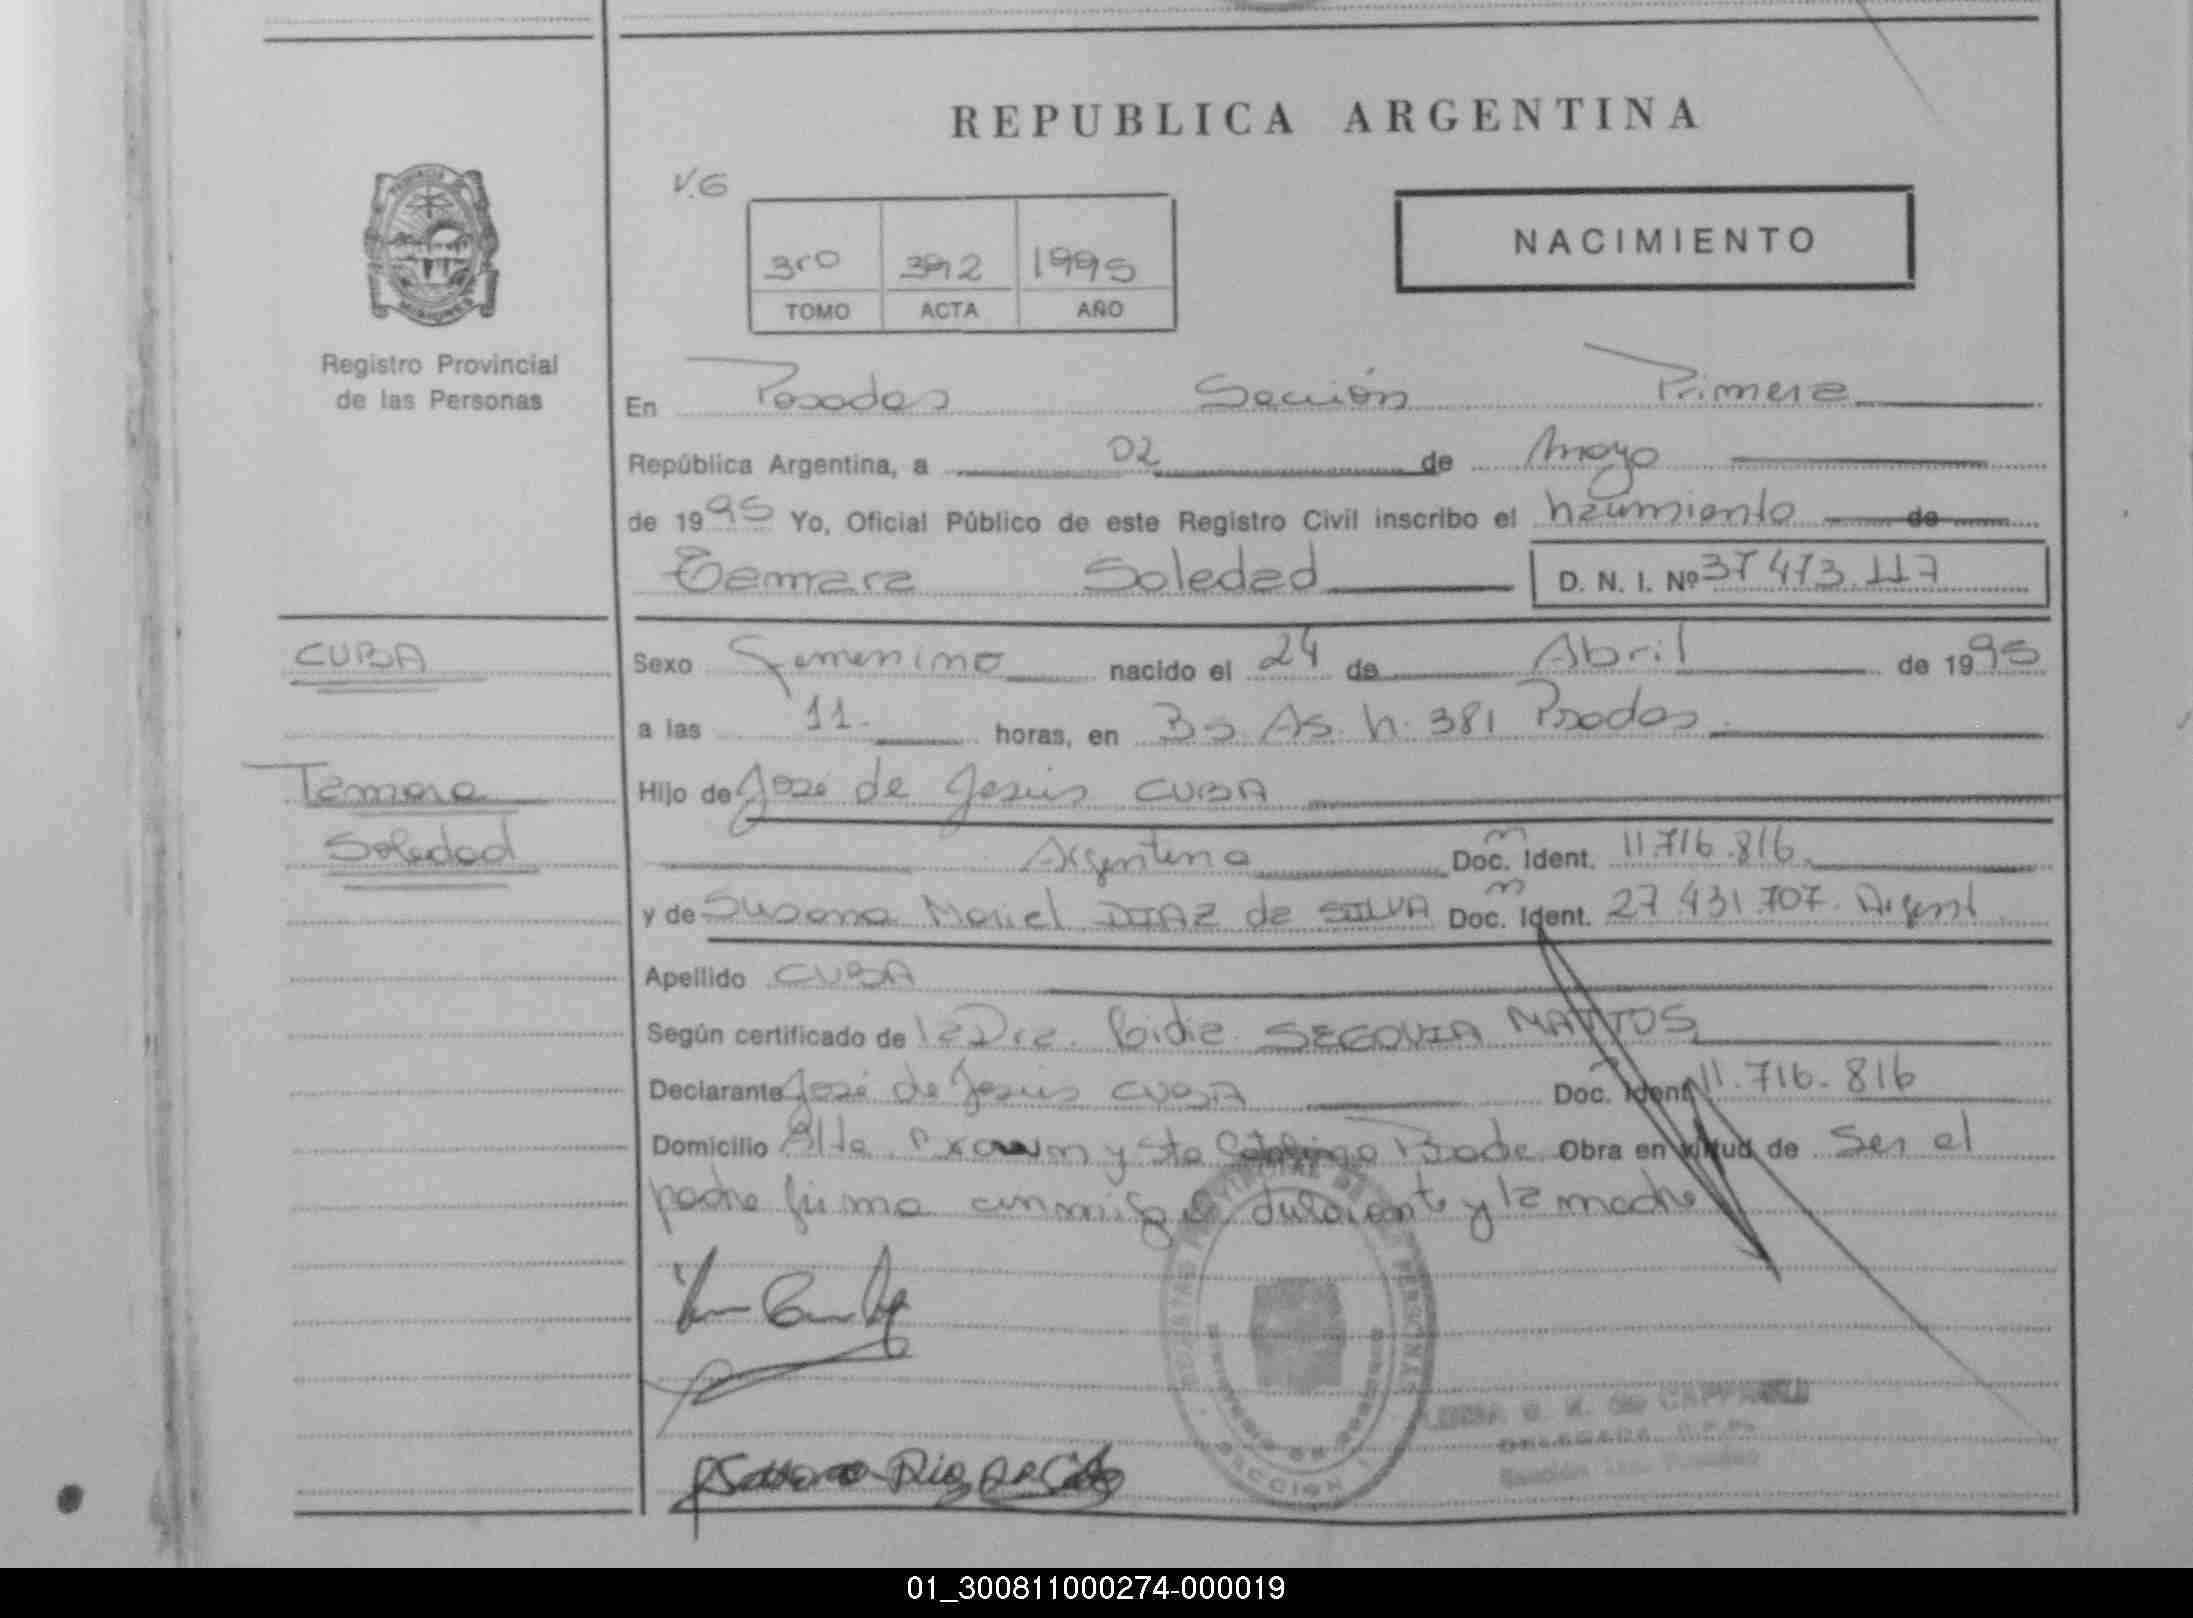 REPUBLICA ARGENTINA
V.G
3ro 392 1995
TOMO ACTA AÑO
NACIMIENTO
Registro Provincial
de las Personas
En Posadas Sección Primera
República Argentina, a 02 de Mayo
de 1995 Yo, Oficial Público de este Registro Civil inscribo el nacimiento de
Tamara Soledad D. N. I. Nº 37 473.117
CUBA
Sexo Femenino nacido el 24 de Abril de 1995
a las 11 horas, en Bs. As. n. 381 Posadas
Tamara
Hijo de José de Jesús CUBA
Soledad
Argentino Doc. Ident. 11.716.816
y de Susana Mariel DIAZ de SILVA Doc. Ident. 27.431.707. Argent
Apellido CUBA
Según certificado de la Dra. Lidia SEGOVIA MATTOS
Declarante José de Jesús CUBA Doc. Ident 11.716.816
Domicilio Alte. y Sta Catalina Obra en virtud de Ser el
padre firma y la madre
REGISTRO PROVINCIAL DE LAS PERSONAS
SECCION
de CAPPARELLI
DELEGADA R.P.P.
Sección 1ra. Posadas
01_300811000274-000019